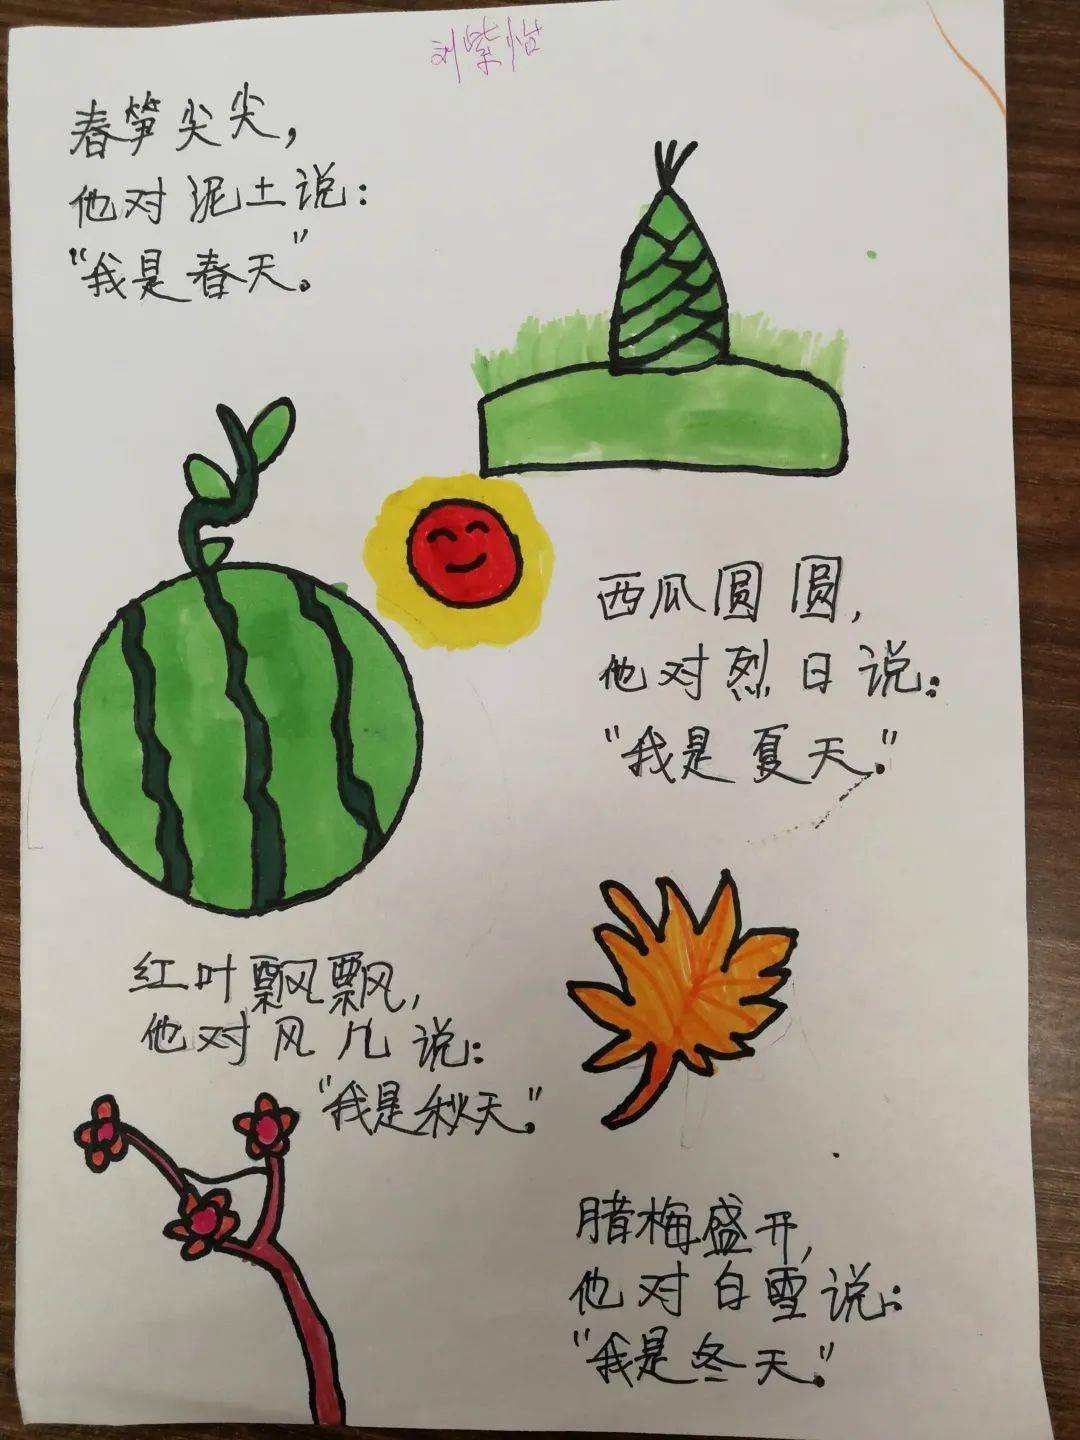 刘紫怡
春笋尖尖，
他对泥土说：
“我是春天”。
西瓜圆圆，
他对烈日说：
“我是夏天。”
红叶飘飘，
他对风儿说：
“我是秋天。”
腊梅盛开，
他对白雪说：
“我是冬天。”